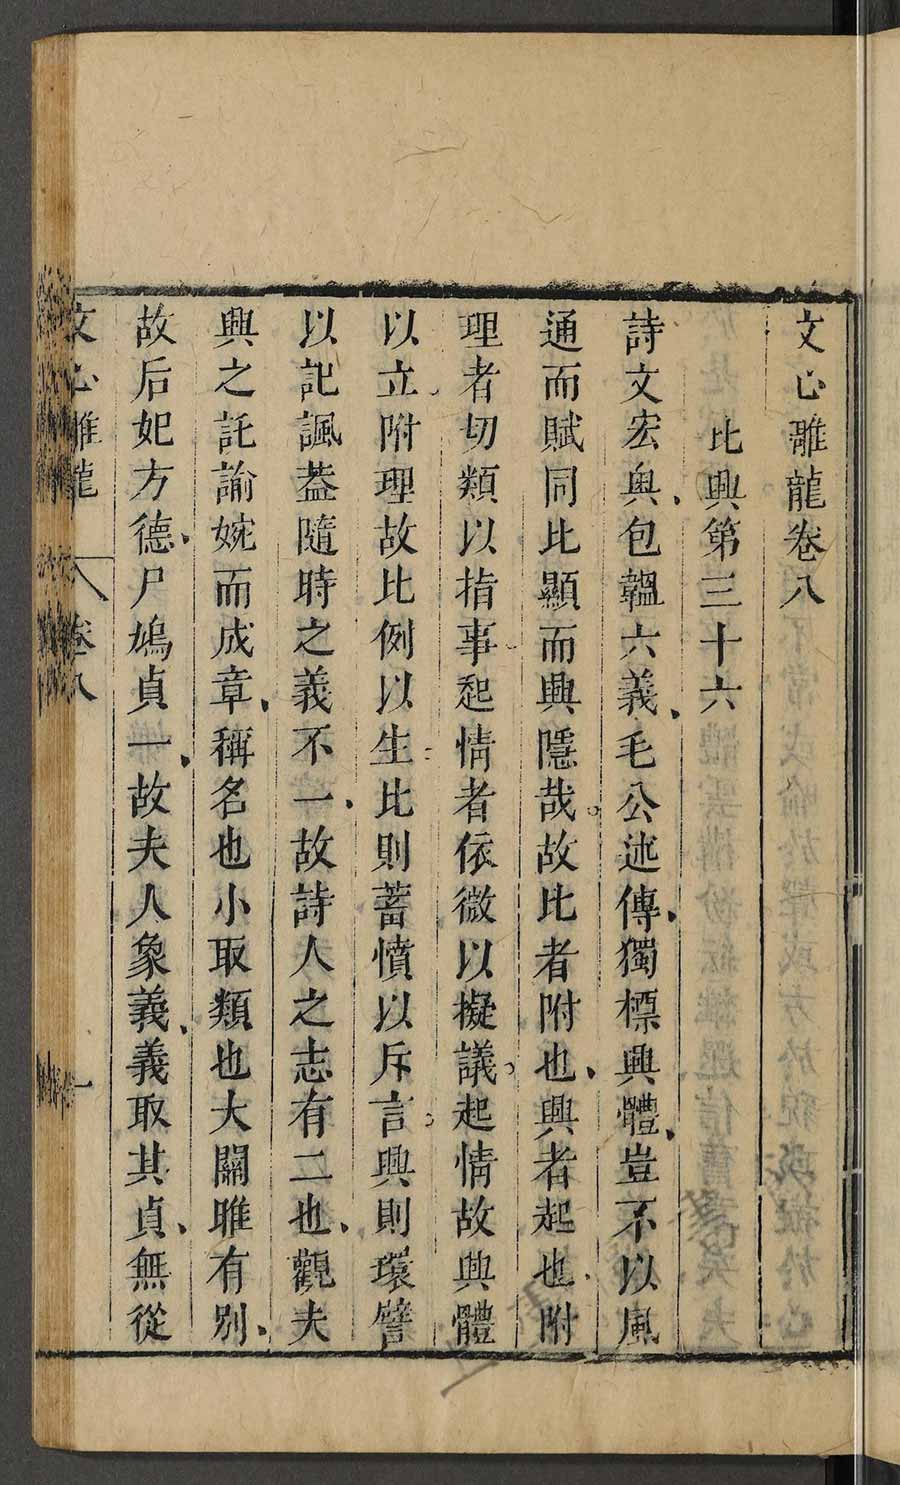 文心雕龍卷八
比興第三十六
詩文宏奥、包韞六義、毛公述傳、獨標興體、豈不以風
通而賦同比顯而興隱哉。故比者附也、興者起也、附
理者切類以指事起情者依微以擬議。起情故興體
以立附理故比例以生比則蓄憤以斥言。興則環譬
以記諷蓋隨時之義不一、故詩人之志有二也、觀夫
興之託諭婉而成章、稱名也小取類也大關雎有別、
故后妃方德、尸鳩貞一、故夫人象義、義取其貞、無從
文心雕龍 卷八 一